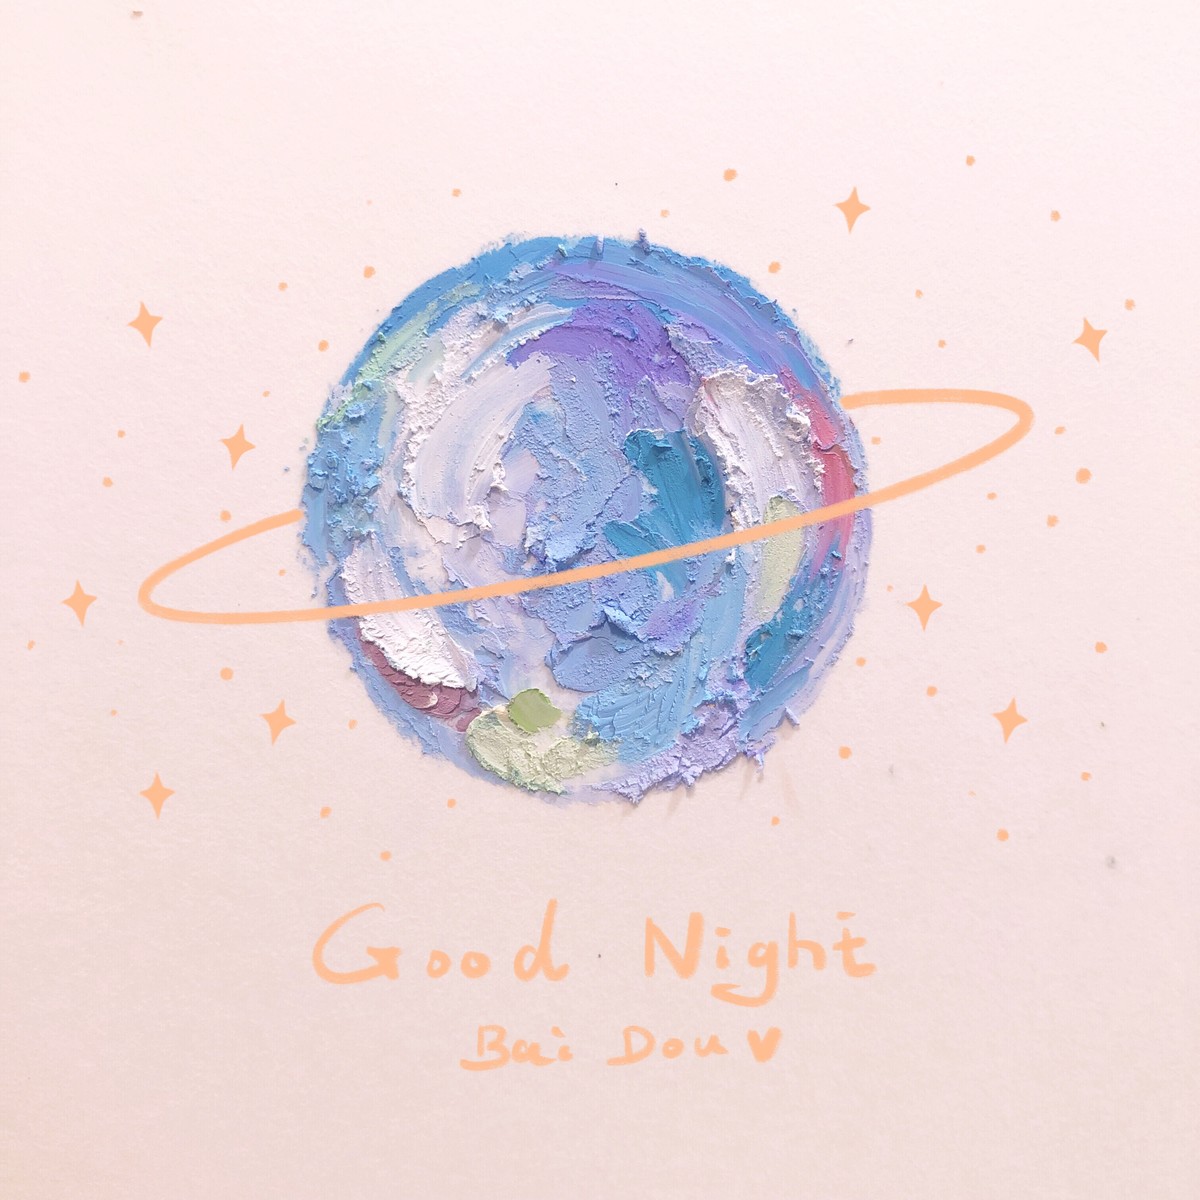 Good Night
Bai Dou ♥